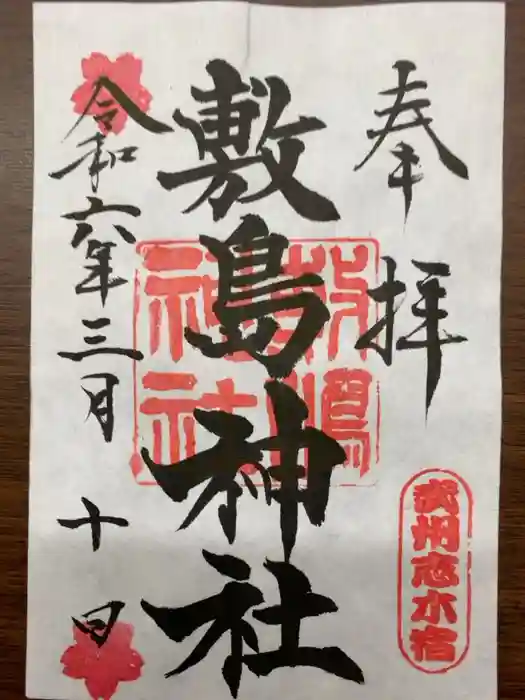 奉拝
武州志木宿
敷島神社
敷嶋神社
令和六年三月十日